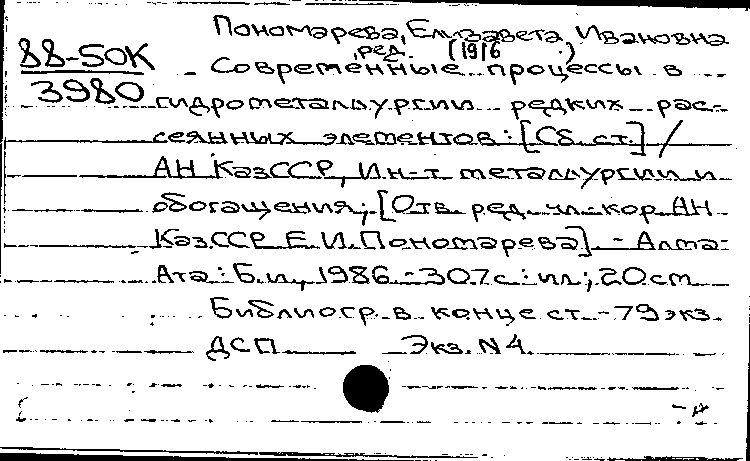 Пономарева, Елизавета Ивановна
ред. (1916 )
88-50К
3980
Современные процессы в
гидрометаллургии редких рас-
сеянных элементов: [Сб. ст.] /
АН КазССР, Ин-т металлургии и
обогащения; [Отв. ред. чл.-кор. АН
КазССР Е.И. Пономарева]. - Алма-
Ата: Б.и., 1986. - 307с.: ил; 20см
Библиогр. в конце ст. - 79 экз.
ДСП Экз. N 4.